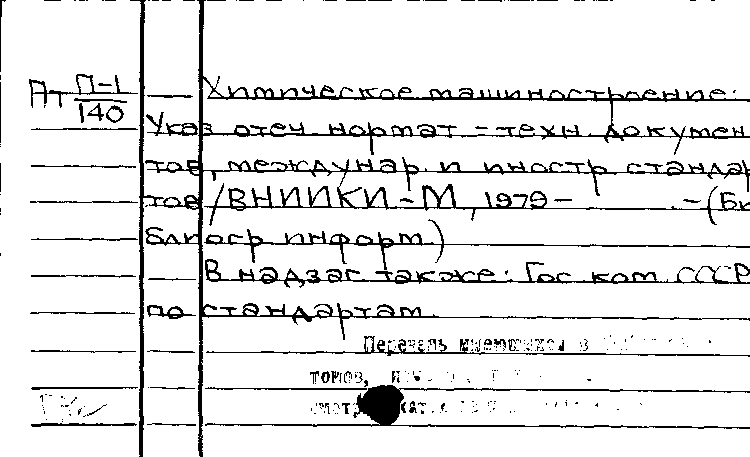 Пт П-1/140 Химическое машиностроение:
Указ отеч нормат-техн докумен
тов, междунар. и иностр стандар
тов/ВНИИКИ-М, 1979- .-(Би
блиогр информ.)
В надзаг также: Гос ком. СССР
по стандартам.
Перечень имеющихся в
томов,
смотр кат